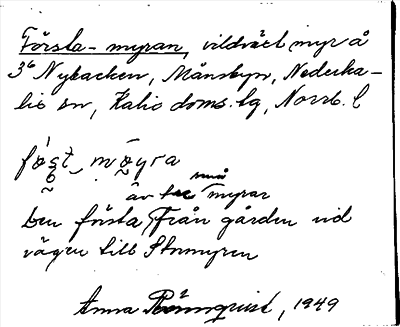 Första-myran, vildväxt myr å
3⁶ Nybacken, Månsbyn, Nederka-
lix sn, Kalix doms.lg, Norrb. l
små
av tre myrar
Den första från gården vid
vägen till Stormyren
Anna Rönnqvist, 1949